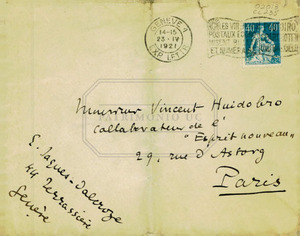 GENÈVE 4
14-15
23. IV
1921
EXP. LETTR.
40 40
ET NUMÉRO
PATRIMONIO
Monsieur Vincent Huidobro
Collaborateur de l'
"Esprit nouveau"
29, rue d'Astorg
Paris
E. Jaques-Dalcroze
44 Terrassière
Genève